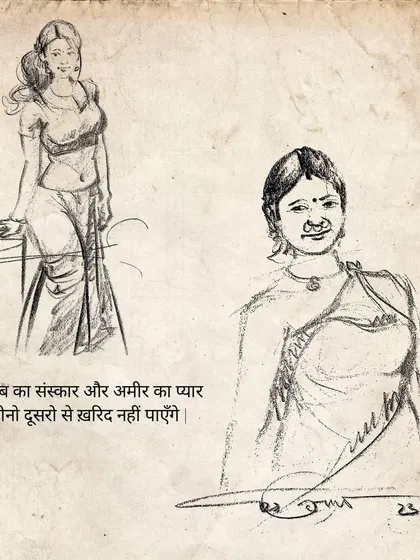 ब का संस्कार और अमीर का प्यार
ोनो दूसरो से ख़रिद नहीं पाएँगे |
23